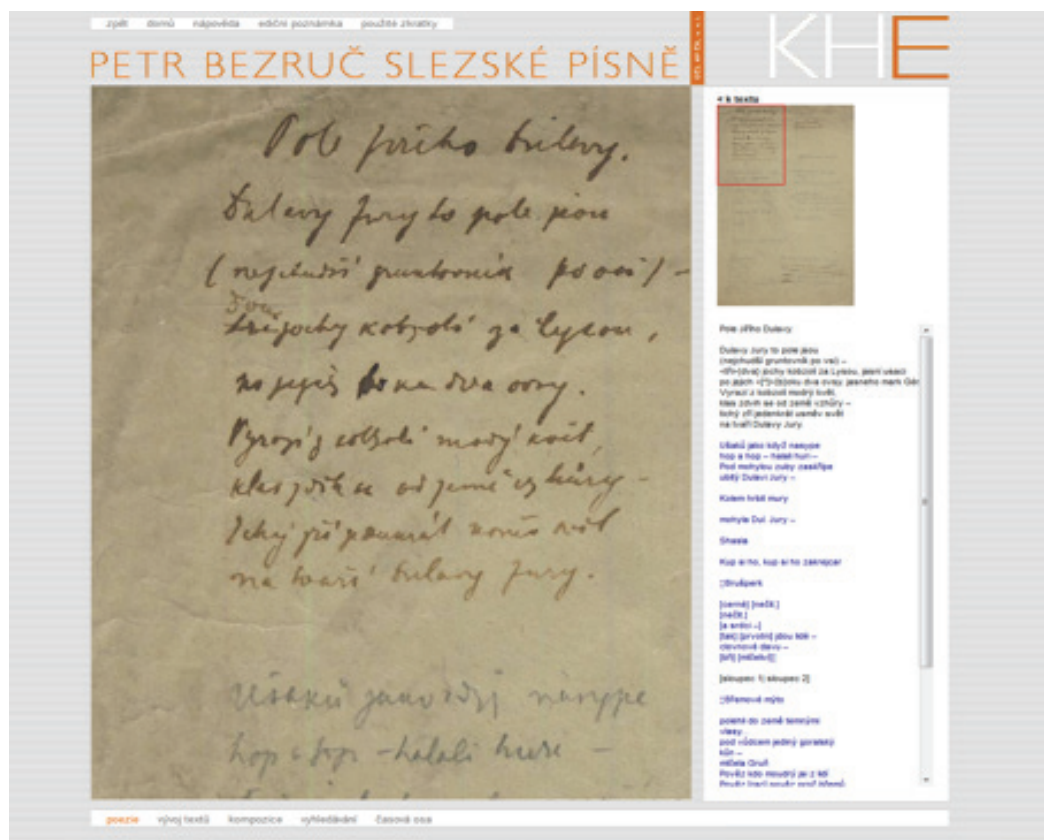 zpět domů nápověda ediční poznámka použité zkratky
PETR BEZRUČ SLEZSKÉ PÍSNĚ
KHE
Pole Jiřího Dulavy.
Dulavy Jury to pole jsou
(nejchudší gruntovník po vsi) –
dva
tři jochy kobzolí za Lysou,
na dva ovsy.
Vyrazí z kobzolí modrý květ,
klas zdvih se od země vzhůry –
Tichý zří
na tváři Dulavy Jury.
Ušáků jako když nasype
hop a hop – halali huri –
< k textu
Pole Jiřího Dulavy
Dulavy Jury to pole jsou
(nejchudší gruntovník po vsi) –
<tři>(dva) jochy kobzolí za Lysou, jasní vsaci
dva ovsy, jasného mark Gér
Vyrazí z kobzolí modrý květ,
klas zdvih se od země vzhůry –
tichý zří jedenkrát usměv svět
na tváři Dulavy Jury.
Ušáků jako když nasype
hop a hop – halali huri –
Pod mohylou zuby zaskřípe
ubitý Dulavi Jury –
Kolem hrdé mury
mohyla Dul. Jury –
Shasla
Kup si ho, kup si ho
Brušperk
[černě] [nečit.]
[nečit.]
[a srdci –]
[tak] [prvotní] jdou kdé –
davy –
[sloupec 1| sloupec 2]
Břenové mýto
poleté do země temnými
vlasy...
pod vůdcem jediný goralský
kůň –
mlčela Gruň
Pověz kdo moudrý je z lidí
poezie vývoj textů kompozice vyhledávání časová osa